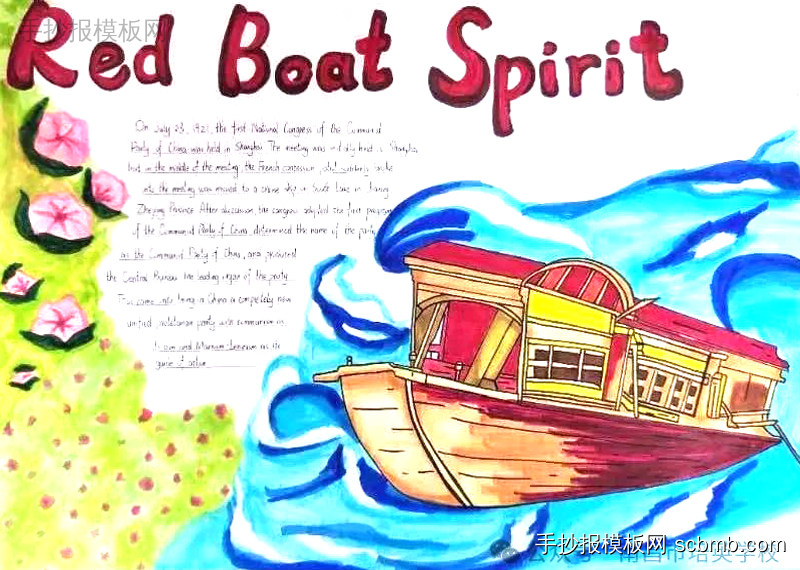 手抄报模板网
Red Boat Spirit
On July 23, 1921, the first National Congress of the Communist
Party of China was held in Shanghai The meeting was initially held in Shanghai
but in the middle of the meeting, the French concession
into the meeting was moved to a cruise ship in South Lake in Jiaxing
Zhejiang Province After discussion, the congress adopted the first program
of the Communist Party of China, determined the name of the party
as the Communist Party of China, and
the Central Bureau the leading organ of the party
into being in China a completely new
unified proletarian party with communism as
its and Marxism-Leninism as its
guide of action
手抄报模板网 scbmb.com
公众号 南昌市培英学校